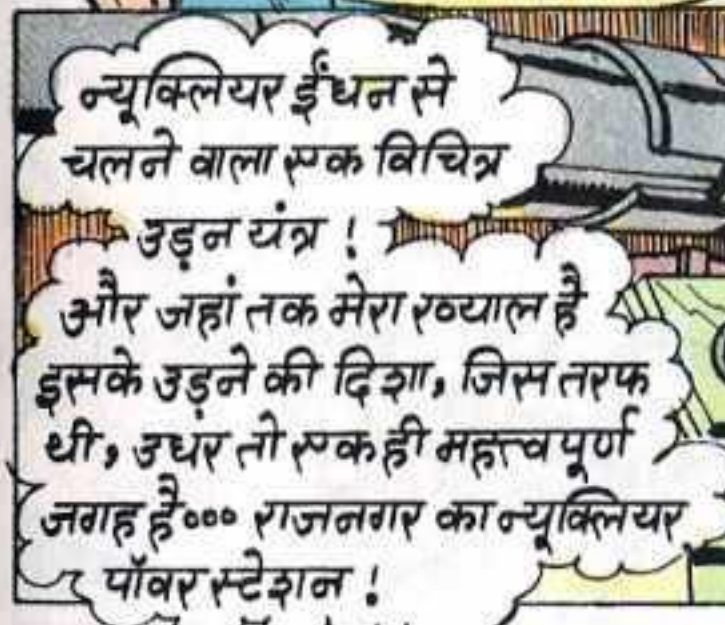 न्यूक्लियर ईंधन से
चलने वाला एक विचित्र
उड़न यंत्र !
और जहां तक मेरा ख्याल है
इसके उड़ने की दिशा, जिस तरफ
थी, उधर तो एक ही महत्त्वपूर्ण
जगह है... राजनगर का न्यूक्लियर
पॉवर स्टेशन !